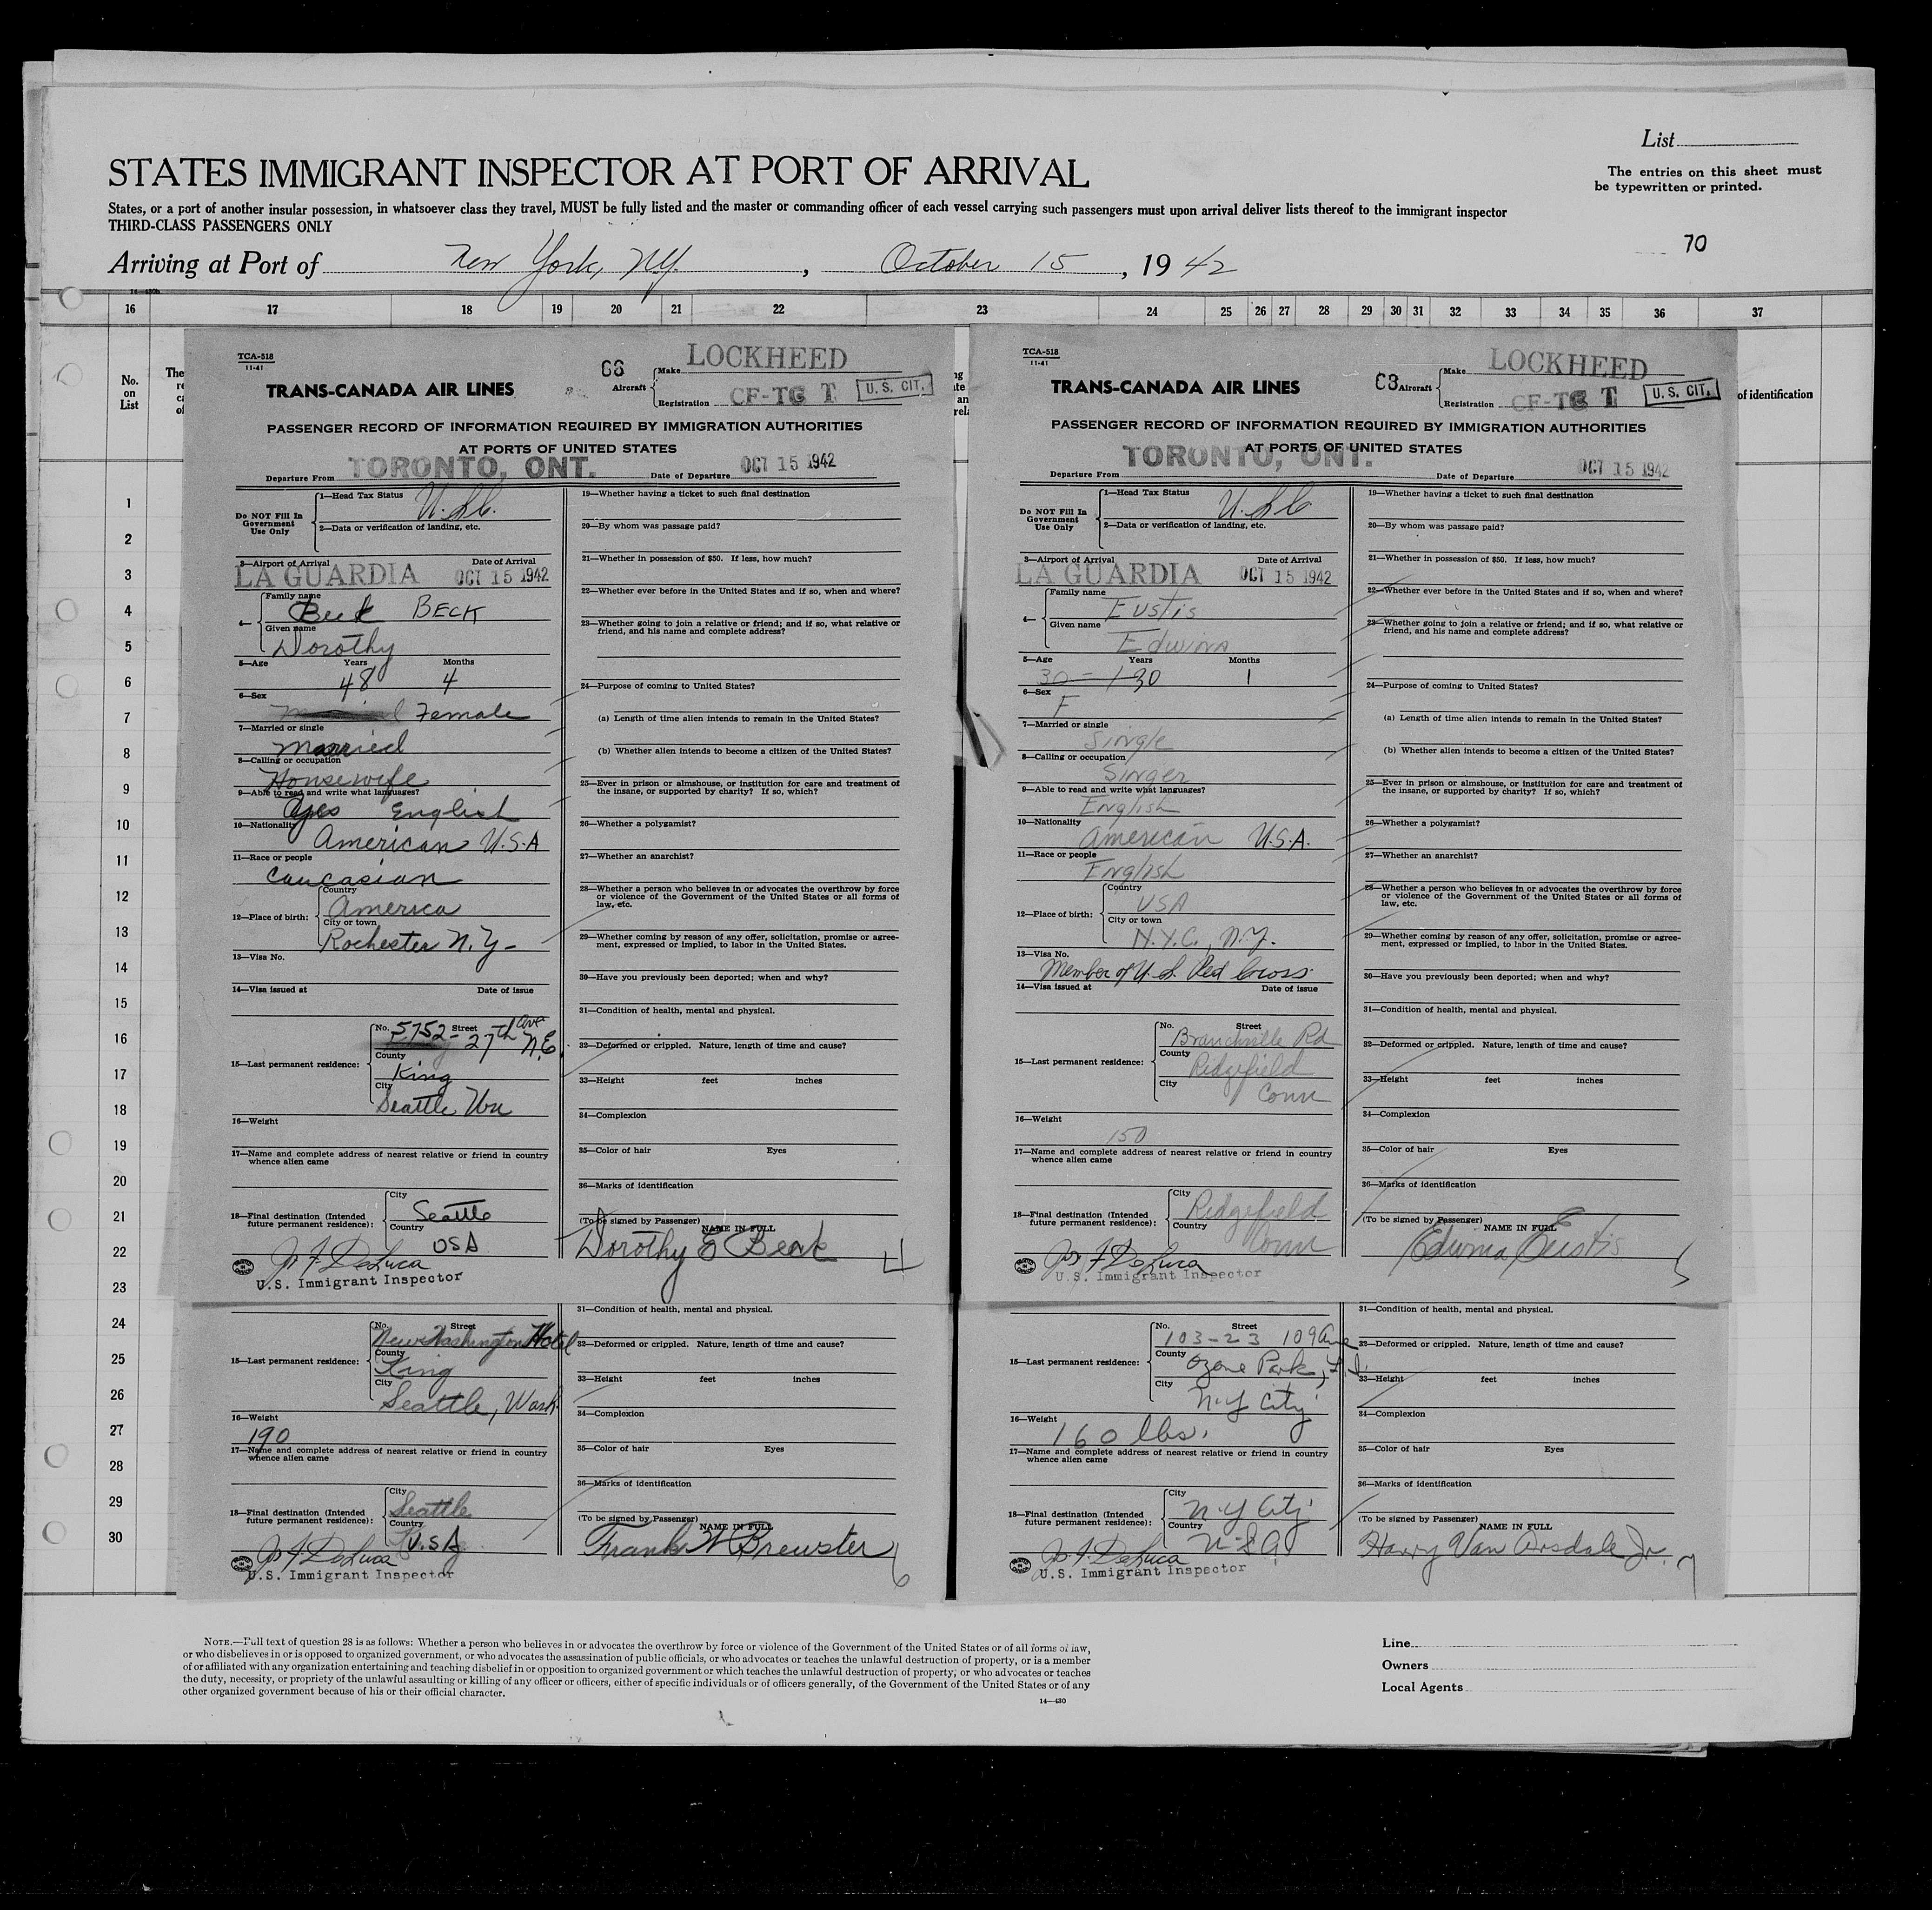 List
STATES IMMIGRANT INSPECTOR AT PORT OF ARRIVAL
The entries on this sheet must
be typewritten or printed.
States, or a port of another insular possession, in whatsoever class they travel, MUST be fully listed and the master or commanding officer of each vessel carrying such passengers must upon arrival deliver lists thereof to the immigrant inspector
THIRD-CLASS PASSENGERS ONLY
70
Arriving at Port of New York, NY. , October 15 , 19 42
16 17 18 19 20 21 22 23 24 25 26 27 28 29 30 31 32 33 34 35 36 37
No.
on
List
of identification
1
2
3
4
5
6
7
8
9
10
11
12
13
14
15
16
17
18
19
20
21
22
23
24
25
26
27
28
29
30
TCA-518
11-41
TRANS-CANADA AIR LINES
66
Aircraft
Make LOCKHEED
Registration CF-TG T
U. S. CIT.
PASSENGER RECORD OF INFORMATION REQUIRED BY IMMIGRATION AUTHORITIES
AT PORTS OF UNITED STATES
Departure From TORONTO, ONT. Date of Departure OCT 15 1942
Do NOT Fill In
Government
Use Only
1—Head Tax Status U.S.C.
2—Data or verification of landing, etc.
3—Airport of Arrival Date of Arrival
LA GUARDIA OCT 15 1942
4—
Family name
Beck BECK
Given name
Dorothy
5—Age Years Months
48 4
6—Sex
Female
7—Married or single
Married
8—Calling or occupation
Housewife
9—Able to read and write what languages?
Yes English
10—Nationality
American U.S.A
11—Race or people
Caucasian
12—Place of birth:
Country
America
City or town
Rochester N.Y-
13—Visa No.
14—Visa issued at Date of issue
15—Last permanent residence:
No. Street
5752- 27th Ave N.E.
County
King
City
Seattle Wn
16—Weight
17—Name and complete address of nearest relative or friend in country
whence alien came
18—Final destination (Intended
future permanent residence):
City
Seattle
Country
USA
Jos. F. DeLuca
U.S. Immigrant Inspector
19—Whether having a ticket to such final destination
20—By whom was passage paid?
21—Whether in possession of $50. If less, how much?
22—Whether ever before in the United States and if so, when and where?
23—Whether going to join a relative or friend; and if so, what relative or
friend, and his name and complete address?
24—Purpose of coming to United States?
(a) Length of time alien intends to remain in the United States?
(b) Whether alien intends to become a citizen of the United States?
25—Ever in prison or almshouse, or institution for care and treatment of
the insane, or supported by charity? If so, which?
26—Whether a polygamist?
27—Whether an anarchist?
28—Whether a person who believes in or advocates the overthrow by force
or violence of the Government of the United States or all forms of
law, etc.
29—Whether coming by reason of any offer, solicitation, promise or agree-
ment, expressed or implied, to labor in the United States.
30—Have you previously been deported; when and why?
31—Condition of health, mental and physical.
32—Deformed or crippled. Nature, length of time and cause?
33—Height feet inches
34—Complexion
35—Color of hair Eyes
36—Marks of identification
(To be signed by Passenger) NAME IN FULL
Dorothy E Beck 4
TCA-518
11-41
TRANS-CANADA AIR LINES
68
Aircraft
Make LOCKHEED
Registration CF-TG T
U. S. CIT.
PASSENGER RECORD OF INFORMATION REQUIRED BY IMMIGRATION AUTHORITIES
AT PORTS OF UNITED STATES
Departure From TORONTO, ONT. Date of Departure OCT 15 1942
Do NOT Fill In
Government
Use Only
1—Head Tax Status U.S.C.
2—Data or verification of landing, etc.
3—Airport of Arrival Date of Arrival
LA GUARDIA OCT 15 1942
4—
Family name
Eustis
Given name
Edwina
5—Age Years Months
30 1
6—Sex
F
7—Married or single
Single
8—Calling or occupation
Singer
9—Able to read and write what languages?
English
10—Nationality
American U.S.A.
11—Race or people
English
12—Place of birth:
Country
USA
City or town
N.Y.C., N.Y.
13—Visa No.
Member of U.S. Red Cross.
14—Visa issued at Date of issue
15—Last permanent residence:
No. Street
Branchville Rd
County
Ridgefield
City
Conn
16—Weight
150
17—Name and complete address of nearest relative or friend in country
whence alien came
18—Final destination (Intended
future permanent residence):
City
Ridgefield
Country
Conn
Jos. F. DeLuca
U.S. Immigrant Inspector
19—Whether having a ticket to such final destination
20—By whom was passage paid?
21—Whether in possession of $50. If less, how much?
22—Whether ever before in the United States and if so, when and where?
23—Whether going to join a relative or friend; and if so, what relative or
friend, and his name and complete address?
24—Purpose of coming to United States?
(a) Length of time alien intends to remain in the United States?
(b) Whether alien intends to become a citizen of the United States?
25—Ever in prison or almshouse, or institution for care and treatment of
the insane, or supported by charity? If so, which?
26—Whether a polygamist?
27—Whether an anarchist?
28—Whether a person who believes in or advocates the overthrow by force
or violence of the Government of the United States or all forms of
law, etc.
29—Whether coming by reason of any offer, solicitation, promise or agree-
ment, expressed or implied, to labor in the United States.
30—Have you previously been deported; when and why?
31—Condition of health, mental and physical.
32—Deformed or crippled. Nature, length of time and cause?
33—Height feet inches
34—Complexion
35—Color of hair Eyes
36—Marks of identification
(To be signed by Passenger) NAME IN FULL
Edwina Eustis 5
15—Last permanent residence:
No. Street
New Washington Hotel
County
King
City
Seattle, Wash
16—Weight
190
17—Name and complete address of nearest relative or friend in country
whence alien came
18—Final destination (Intended
future permanent residence):
City
Seattle
Country
U.S.A
Jos. F. DeLuca
U.S. Immigrant Inspector
31—Condition of health, mental and physical.
32—Deformed or crippled. Nature, length of time and cause?
33—Height feet inches
34—Complexion
35—Color of hair Eyes
36—Marks of identification
(To be signed by Passenger) NAME IN FULL
Frank W Brewster 6
15—Last permanent residence:
No. Street
103-23 109 Ave
County
Ozone Park, L.I.
City
N.Y City
16—Weight
160 lbs.
17—Name and complete address of nearest relative or friend in country
whence alien came
18—Final destination (Intended
future permanent residence):
City
N.Y City
Country
U.S.A.
Jos. F. DeLuca
U.S. Immigrant Inspector
31—Condition of health, mental and physical.
32—Deformed or crippled. Nature, length of time and cause?
33—Height feet inches
34—Complexion
35—Color of hair Eyes
36—Marks of identification
(To be signed by Passenger) NAME IN FULL
Harry Van Arsdale Jr. 7
NOTE.—Full text of question 28 is as follows: Whether a person who believes in or advocates the overthrow by force or violence of the Government of the United States or of all forms of law,
or who disbelieves in or is opposed to organized government, or who advocates the assassination of public officials, or who advocates or teaches the unlawful destruction of property, or is a member
of or affiliated with any organization entertaining and teaching disbelief in or opposition to organized government or which teaches the unlawful destruction of property, or who advocates or teaches
the duty, necessity, or propriety of the unlawful assaulting or killing of any officer or officers, either of specific individuals or of officers generally, of the Government of the United States or of any
other organized government because of his or their official character.
14—430
Line
Owners
Local Agents